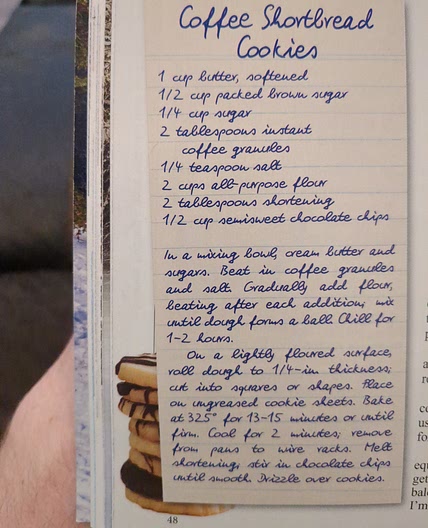 Coffee Shortbread
Cookies
1 cup butter, softened
1/2 cup packed brown sugar
1/4 cup sugar
2 tablespoons instant
coffee granules
1/4 teaspoon salt
2 cups all-purpose flour
2 tablespoons shortening
1/2 cup semisweet chocolate chips
In a mixing bowl, cream butter and
sugars. Beat in coffee granules
and salt. Gradually add flour,
beating after each addition; mix
until dough forms a ball. Chill for
1-2 hours.
On a lightly floured surface,
roll dough to 1/4-in thickness;
cut into squares or shapes. Place
on ungreased cookie sheets. Bake
at 325° for 13-15 minutes or until
firm. Cool for 2 minutes; remove
from pans to wire racks. Melt
shortening; stir in chocolate chips
until smooth. Drizzle over cookies.
48